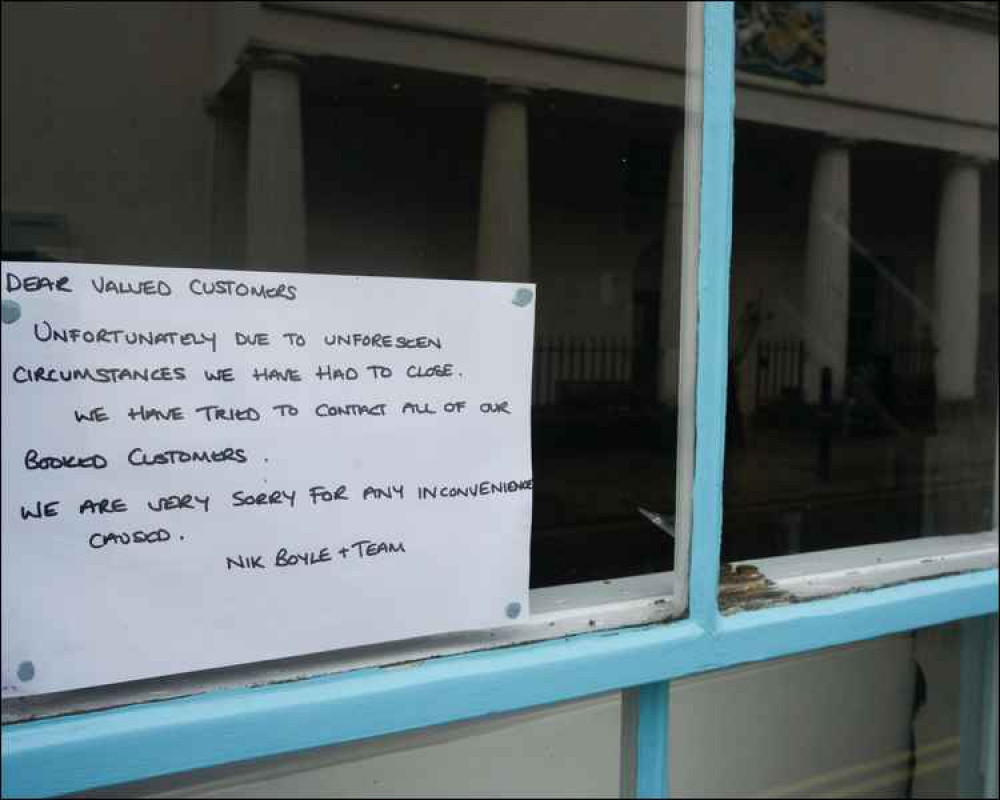 DEAR VALUED CUSTOMERS
UNFORTUNATELY DUE TO UNFORESEEN
CIRCUMSTANCES WE HAVE HAD TO CLOSE.
WE HAVE TRIED TO CONTACT ALL OF OUR
BOOKED CUSTOMERS.
WE ARE VERY SORRY FOR ANY INCONVENIENCE
CAUSED.
NIK BOYLE + TEAM